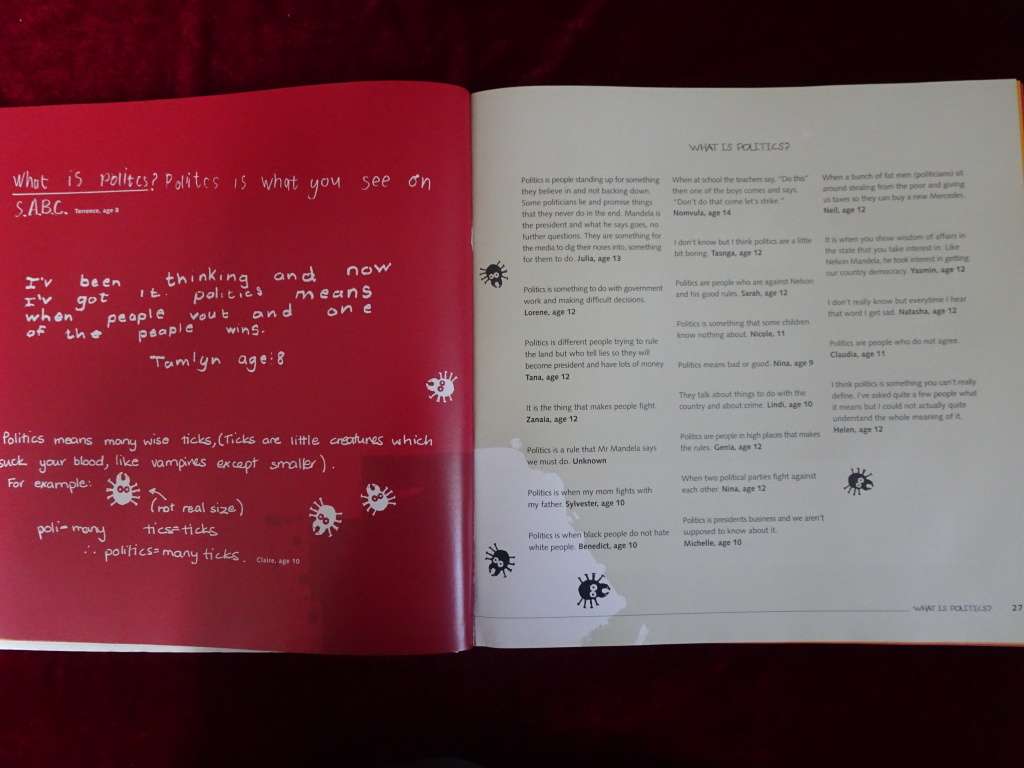 What is Polites? Polites is what you see on
S.A.B.C. Terrence, age 8
I'v been thinking and now
I'v got it. politics means
when people vout and one
of the people wins.
Tamlyn age:8
Politics means many wise ticks,(Ticks are little creatures which
suck your blood, like vampires except smaller).
For example:
(not real size)
poli=many tics=ticks
∴ politics=many ticks. Claire, age 10
WHAT IS POLITICS?
Politics is people standing up for something
they believe in and not backing down.
Some politicians lie and promise things
that they never do in the end. Mandela is
the president and what he says goes, no
further questions. They are something for
the media to dig their noses into, something
for them to do. Julia, age 13
Politics is something to do with government
work and making difficult decisions.
Lorene, age 12
Politics is different people trying to rule
the land but who tell lies so they will
become president and have lots of money
Tana, age 12
It is the thing that makes people fight.
Zanaia, age 12
Politics is a rule that Mr Mandela says
we must do. Unknown
Politics is when my mom fights with
my father. Sylvester, age 10
Politics is when black people do not hate
white people. Benedict, age 10
When at school the teachers say, "Do this"
then one of the boys comes and says,
"Don't do that come let's strike."
Nomvula, age 14
I don't know but I think politics are a little
bit boring. Tsanga, age 12
Politics are people who are against Nelson
and his good rules. Sarah, age 12
Politics is something that some children
know nothing about. Nicole, 11
Politics means bad or good. Nina, age 9
They talk about things to do with the
country and about crime. Lindi, age 10
Politics are people in high places that makes
the rules. Genia, age 12
When two political parties fight against
each other. Nina, age 12
Politics is presidents business and we aren't
supposed to know about it.
Michelle, age 10
When a bunch of fat men (politicians) sit
around stealing from the poor and giving
us taxes so they can buy a new Mercedes.
Neil, age 12
It is when you show wisdom of affairs in
the state that you take interest in. Like
Nelson Mandela, he took interest in getting
our country democracy. Yasmin, age 12
I don't really know but everytime I hear
that word I get sad. Natasha, age 12
Politics are people who do not agree.
Claudia, age 11
I think politics is something you can't really
define. I've asked quite a few people what
it means but I could not actually quite
understand the whole meaning of it.
Helen, age 12
WHAT IS POLITICS? 27